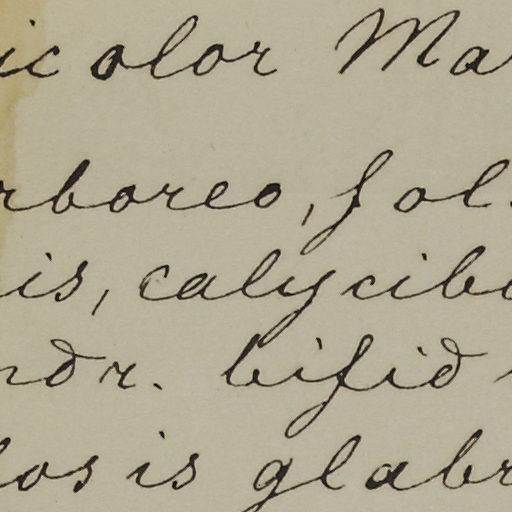 icolor Ma
rboreo, fol
is, calycib
ndr. bifid
los is glabr